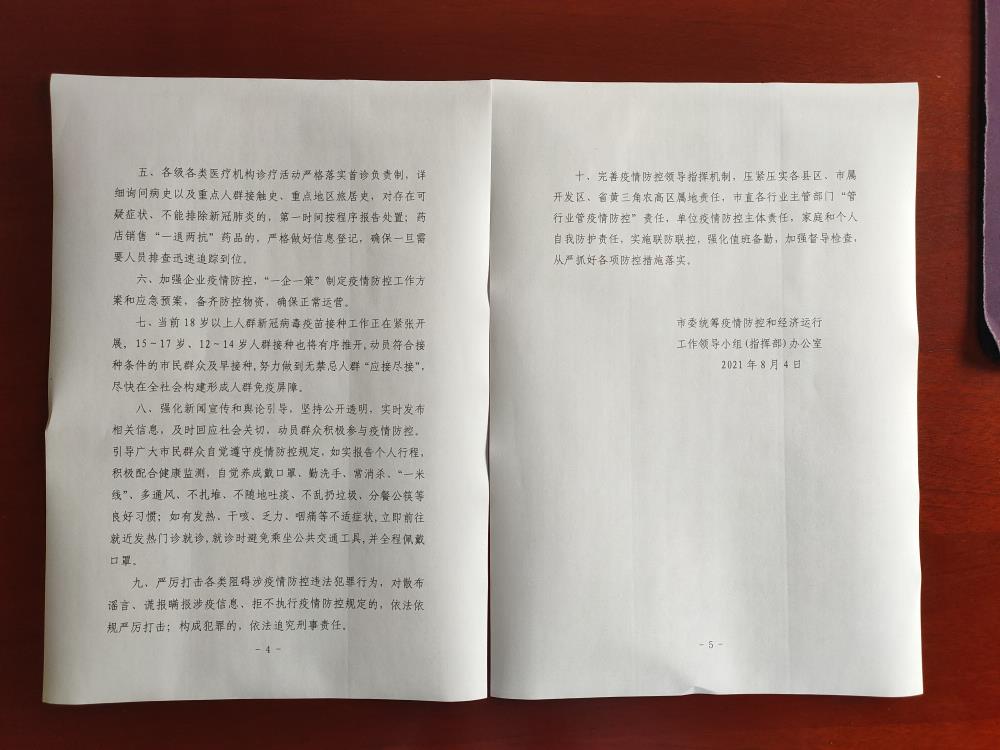 五、各级各类医疗机构诊疗活动严格落实首诊负责制，详
细询问病史以及重点人群接触史、重点地区旅居史，对存在可
疑症状、不能排除新冠肺炎的，第一时间按程序报告处置；药
店销售“一退两抗”药品的，严格做好信息登记，确保一旦需
要人员排查迅速追踪到位。
六、加强企业疫情防控，“一企一策”制定疫情防控工作方
案和应急预案，备齐防控物资，确保正常运营。
七、当前18岁以上人群新冠病毒疫苗接种工作正在紧张开
展，15～17岁、12～14岁人群接种也将有序推开，动员符合接
种条件的市民群众及早接种，努力做到无禁忌人群“应接尽接”，
尽快在全社会构建形成人群免疫屏障。
八、强化新闻宣传和舆论引导，坚持公开透明，实时发布
相关信息，及时回应社会关切，动员群众积极参与疫情防控。
引导广大市民群众自觉遵守疫情防控规定，如实报告个人行程，
积极配合健康监测，自觉养成戴口罩、勤洗手、常消杀、“一米
线”、多通风、不扎堆、不随地吐痰、不乱扔垃圾、分餐公筷等
良好习惯；如有发热、干咳、乏力、咽痛等不适症状，立即前往
就近发热门诊就诊，就诊时避免乘坐公共交通工具，并全程佩戴
口罩。
九、严厉打击各类阻碍涉疫情防控违法犯罪行为，对散布
谣言、谎报瞒报涉疫信息、拒不执行疫情防控规定的，依法依
规严厉打击；构成犯罪的，依法追究刑事责任。
- 4 -
十、完善疫情防控领导指挥机制，压紧压实各县区、市属
开发区、省黄三角农高区属地责任，市直各行业主管部门“管
行业管疫情防控”责任，单位疫情防控主体责任，家庭和个人
自我防护责任，实施联防联控，强化值班备勤，加强督导检查，
从严抓好各项防控措施落实。
市委统筹疫情防控和经济运行
工作领导小组（指挥部）办公室
2021年8月4日
- 5 -